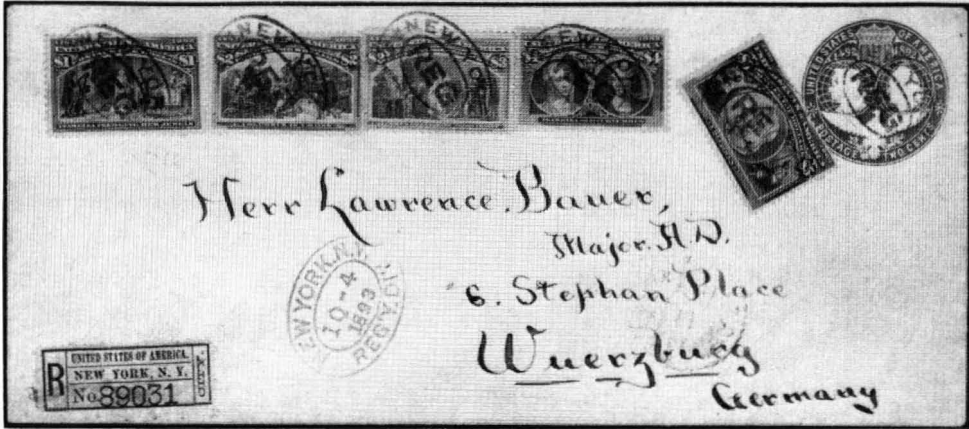 NEW YORK
REG
NEW YORK
REG
NEW YORK
REG
NEW YORK
REG
$1 $1
UNITED STATES OF AMERICA
POSTAGE TWO CENTS
Herr Lawrence Bauer,
Major. A.D.
6. Stephan Place
Wuerzburg
Germany
NEW YORK, N.Y.
10-4
1893
REG'Y. DIV.
R
UNITED STATES OF AMERICA.
NEW YORK, N. Y.
No. 89031
CITY.